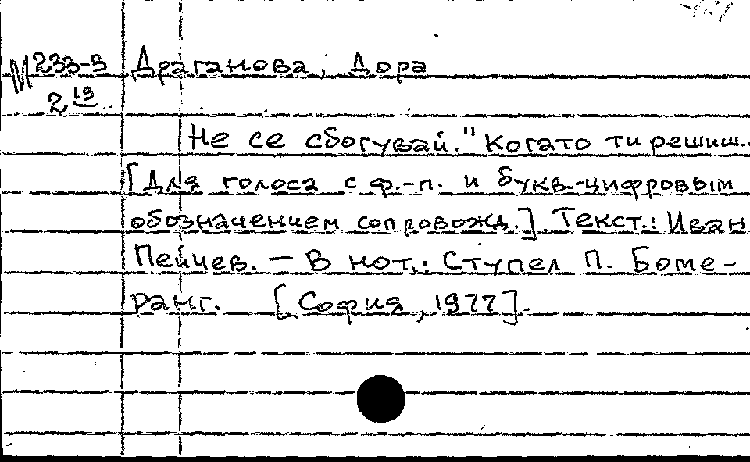 М 233-3 Драганова, Дора
2 19
Не се сбогувай. "Когато ти решиш..
[Для голоса с ф.-п. и букв.-цифровым
обозначением сопровожд.]. Текст.: Иван
Пейчев. — В нот.: Ступел П. Боме-
ранг. [София, 1977].